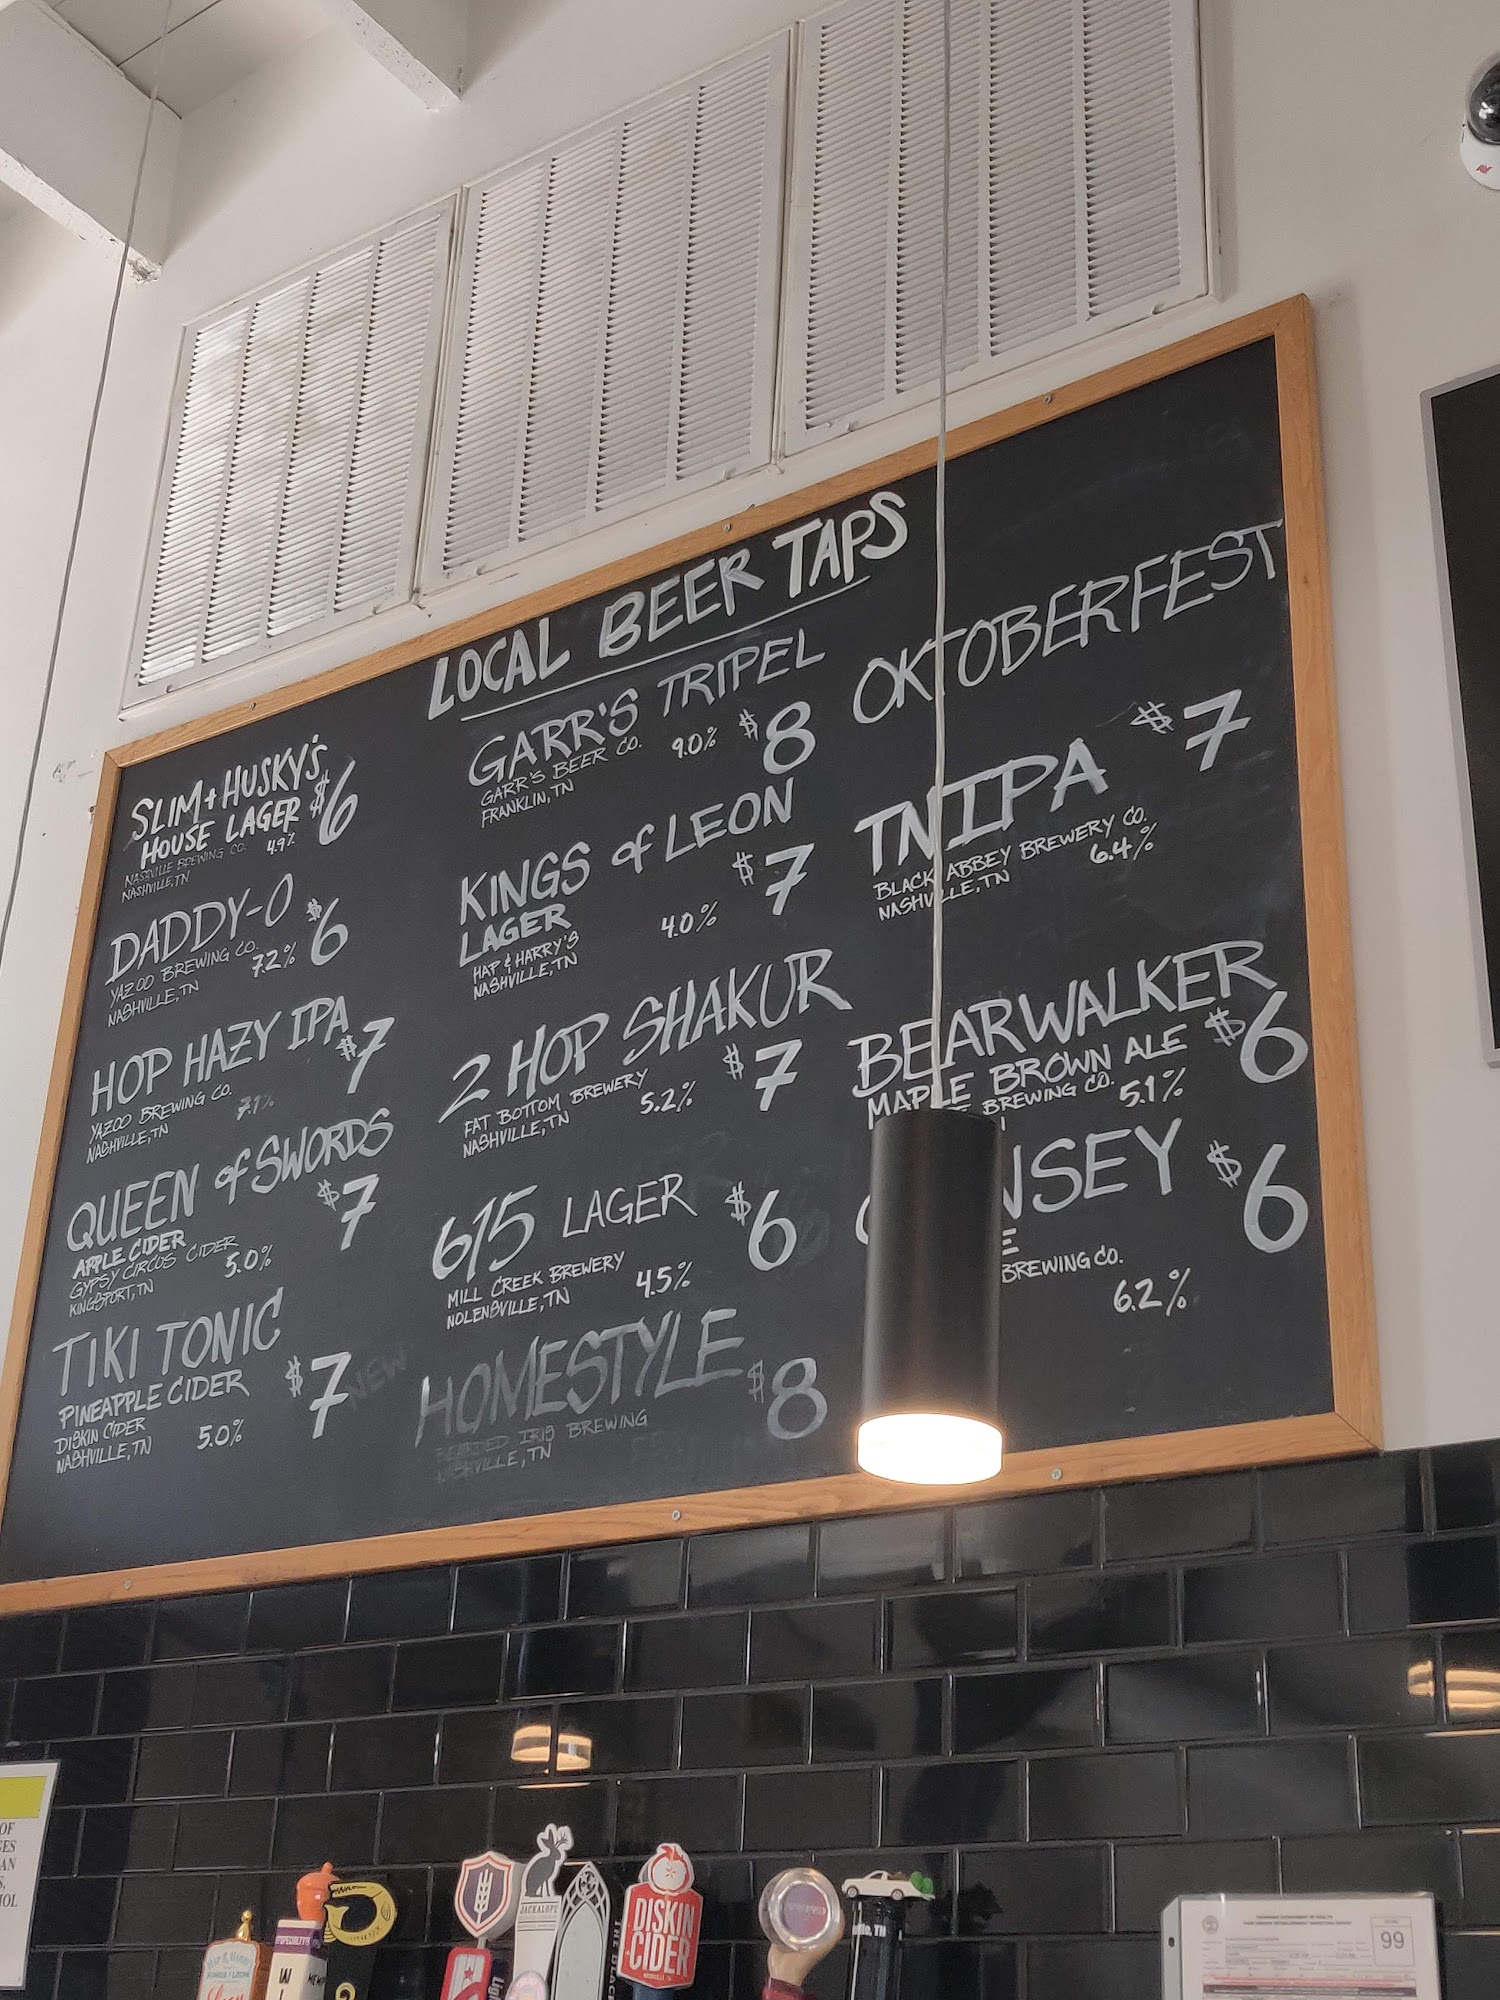 LOCAL BEER TAPS
SLIM + HUSKY'S
HOUSE LAGER $6
NASHVILLE BREWING CO. 4.9%
NASHVILLE, TN
DADDY-O $6
YAZOO BREWING CO. 7.2%
NASHVILLE, TN
HOP HAZY IPA $7
YAZOO BREWING CO. 7.1%
NASHVILLE, TN
QUEEN of SWORDS $7
APPLE CIDER
GYPSY CIRCUS CIDER 5.0%
KINGSPORT, TN
TIKI TONIC
PINEAPPLE CIDER $7
DISKIN CIDER
NASHVILLE, TN 5.0%
GARR'S TRIPEL
GARR'S BEER CO. 9.0% $8
FRANKLIN, TN
KINGS of LEON
LAGER 4.0% $7
HAP & HARRY'S
NASHVILLE, TN
2 HOP SHAKUR
FAT BOTTOM BREWERY 5.2% $7
NASHVILLE, TN
615 LAGER $6
MILL CREEK BREWERY 4.5%
NOLENSVILLE, TN
NEW
HOMESTYLE $8
BEARDED IRIS BREWING
NASHVILLE, TN
OKTOBERFEST
$7
TNIPA
BLACK ABBEY BREWERY CO.
NASHVILLE, TN 6.4%
BEARWALKER
MAPLE BROWN ALE $6
BREWING CO. 5.1%
NSEY $6
BREWING CO.
6.2%
OF
JACKALOPE
DISKIN
CIDER
NASHVILLE, TN
99